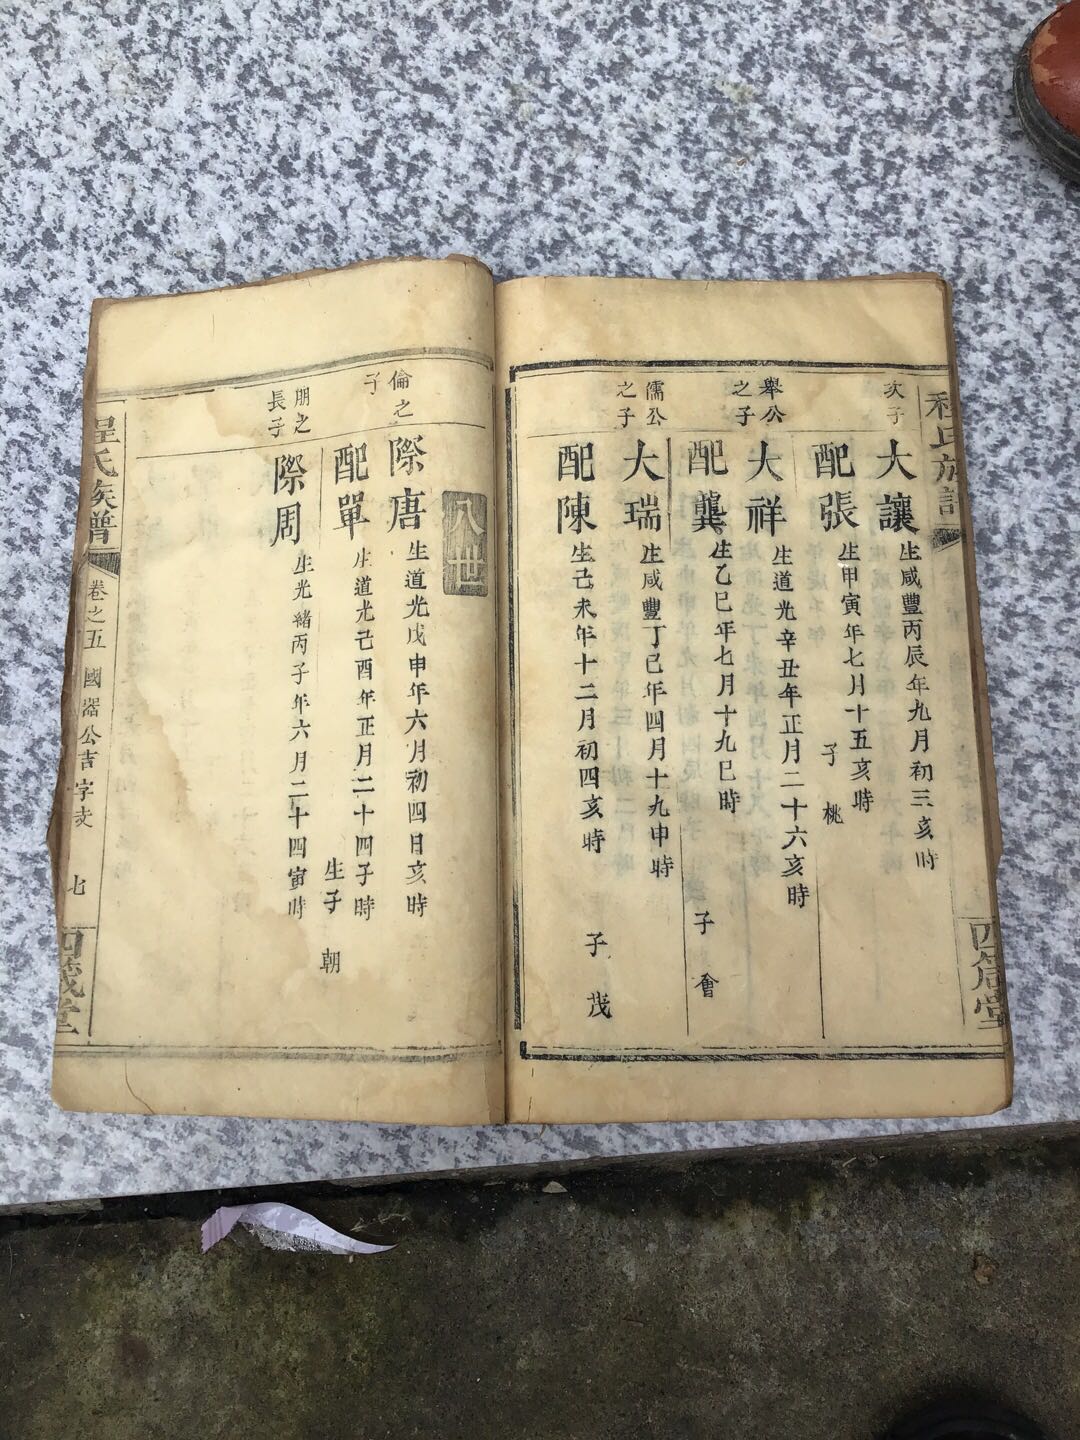 程氏族譜
四箴堂
次子
大讓 生咸豐丙辰年九月初三亥時
配張 生甲寅年七月十五亥時 子 桃
舉公之子
大祥 生道光辛丑年正月二十六亥時
配龔 生乙巳年七月十九巳時 子 會
儒公之子
大瑞 生咸豐丁巳年四月十九申時
配陳 生己未年十二月初四亥時 子 茂
八世
倫之子
際唐 生道光戊申年六月初四日亥時
配單 生道光己酉年正月二十四子時 生子 朝
朋之長子
際周 生光緒丙子年六月二十四寅時
程氏族譜
卷之五 國器公吉字支 七
四箴堂